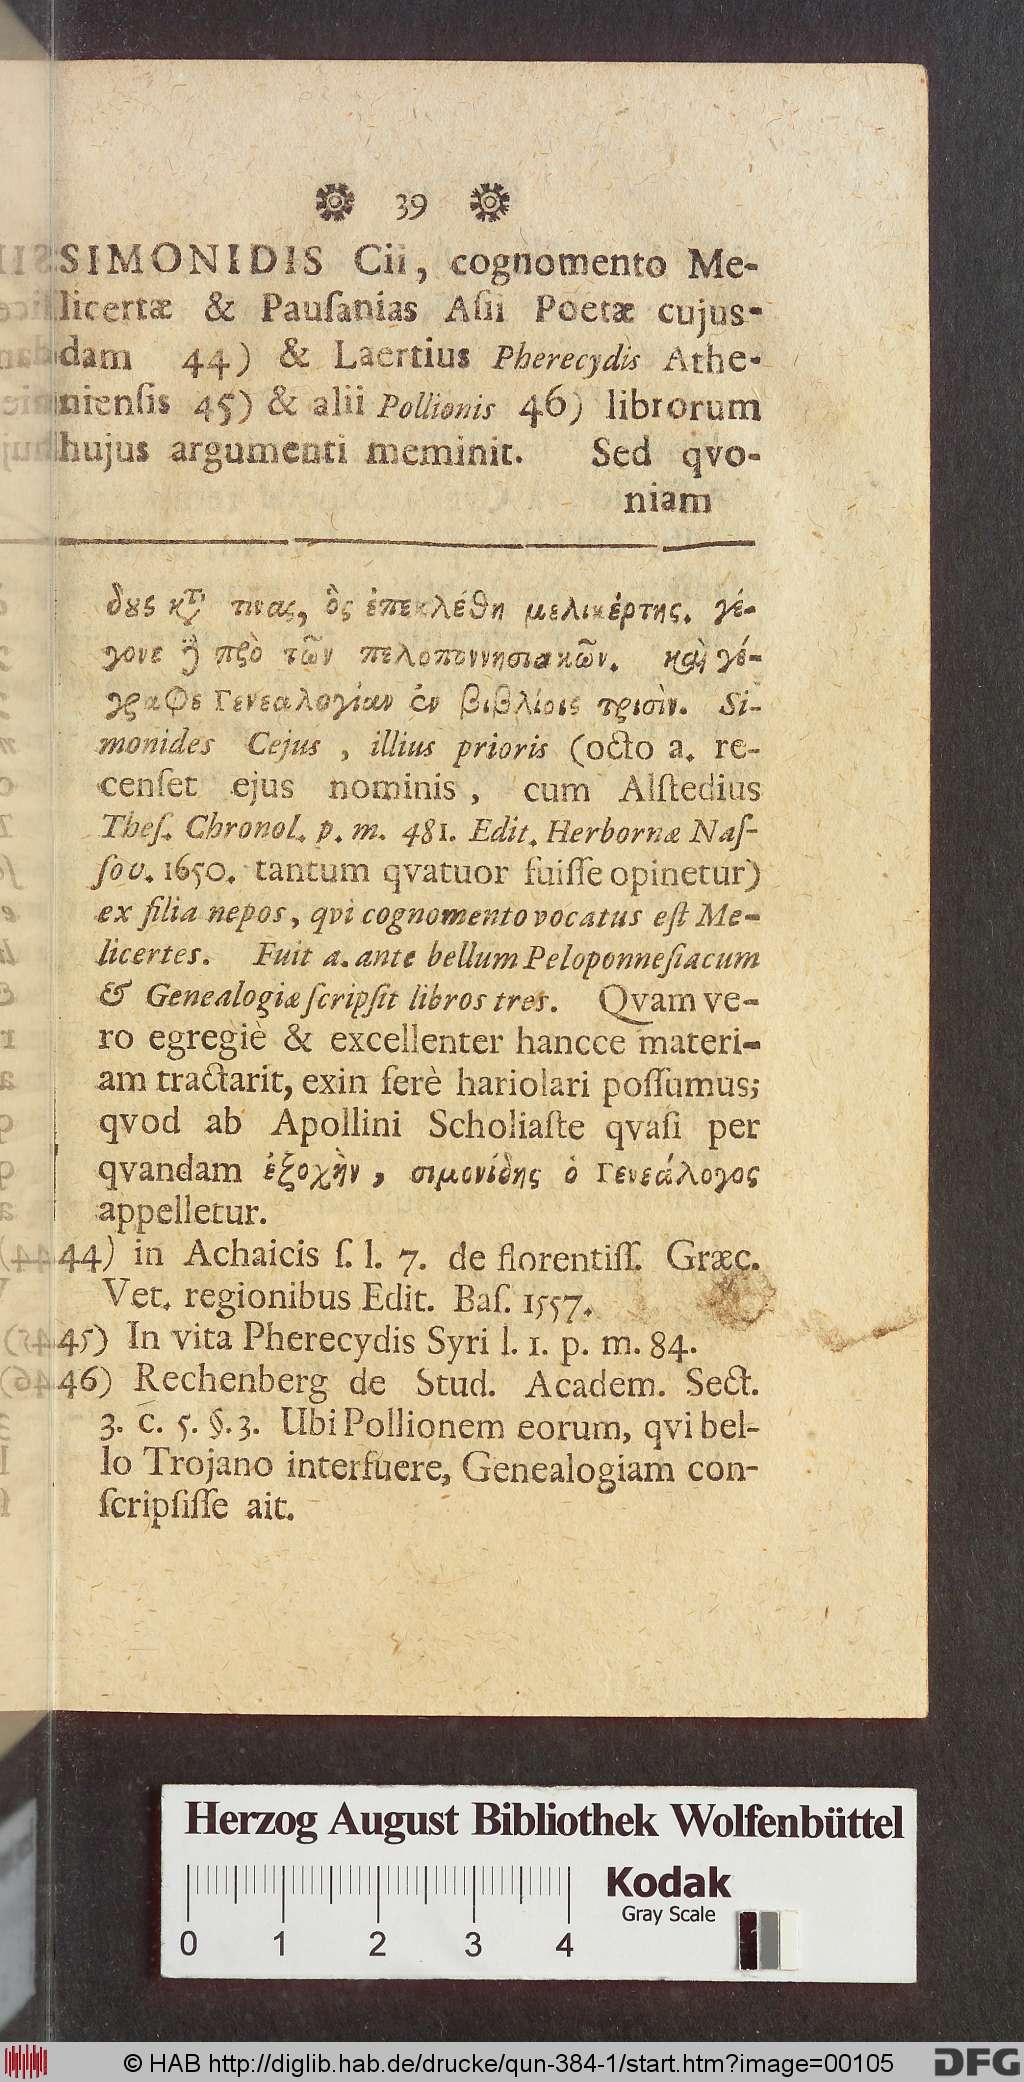 39
SIMONIDIS Cii, cognomento Me-
licertæ & Pauſanias Aſii Poetæ cujus-
dam 44) & Laertius Pherecydis Athe-
nienſis 45) & alii Pollionis 46) librorum
hujus argumenti meminit. Sed qvo-
niam
τινας, ὃς ἐπεκλέθη μελικέρτης. γέ-
γονε πρὸ τῶν πελοποννησιακῶν. καὶ γέ-
γραφε Γενεαλογίαν ἐν βιβλίοις τρισὶν. Si-
monides Cejus, illius prioris (octo a. re-
cenſet ejus nominis, cum Alſtedius
Theſ. Chronol. p. m. 481. Edit. Herbornæ Naſ-
ſov. 1650. tantum qvatuor fuiſſe opinetur)
ex filia nepos, qvi cognomento vocatus eſt Me-
licertes. Fuit a. ante bellum Peloponneſiacum
& Genealogiæ ſcripſit libros tres. Qvam ve-
ro egregiè & excellenter hancce materi-
am tractarit, exin ferè hariolari poſſumus;
qvod ab Apollini Scholiaſte qvaſi per
qvandam ἐξοχὴν, σιμονίδης ὁ Γενεάλογος
appelletur.
44) in Achaicis ſ. l. 7. de florentiſſ. Græc.
Vet. regionibus Edit. Baſ. 1557.
45) In vita Pherecydis Syri l. 1. p. m. 84.
46) Rechenberg de Stud. Academ. Sect.
3. c. 5. §. 3. Ubi Pollionem eorum, qvi bel-
lo Trojano interfuere, Genealogiam con-
ſcripſiſſe ait.
Herzog August Bibliothek Wolfenbüttel
Kodak
Gray Scale
0 1 2 3 4
© HAB http://diglib.hab.de/drucke/qun-384-1/start.htm?image=00105
DFG